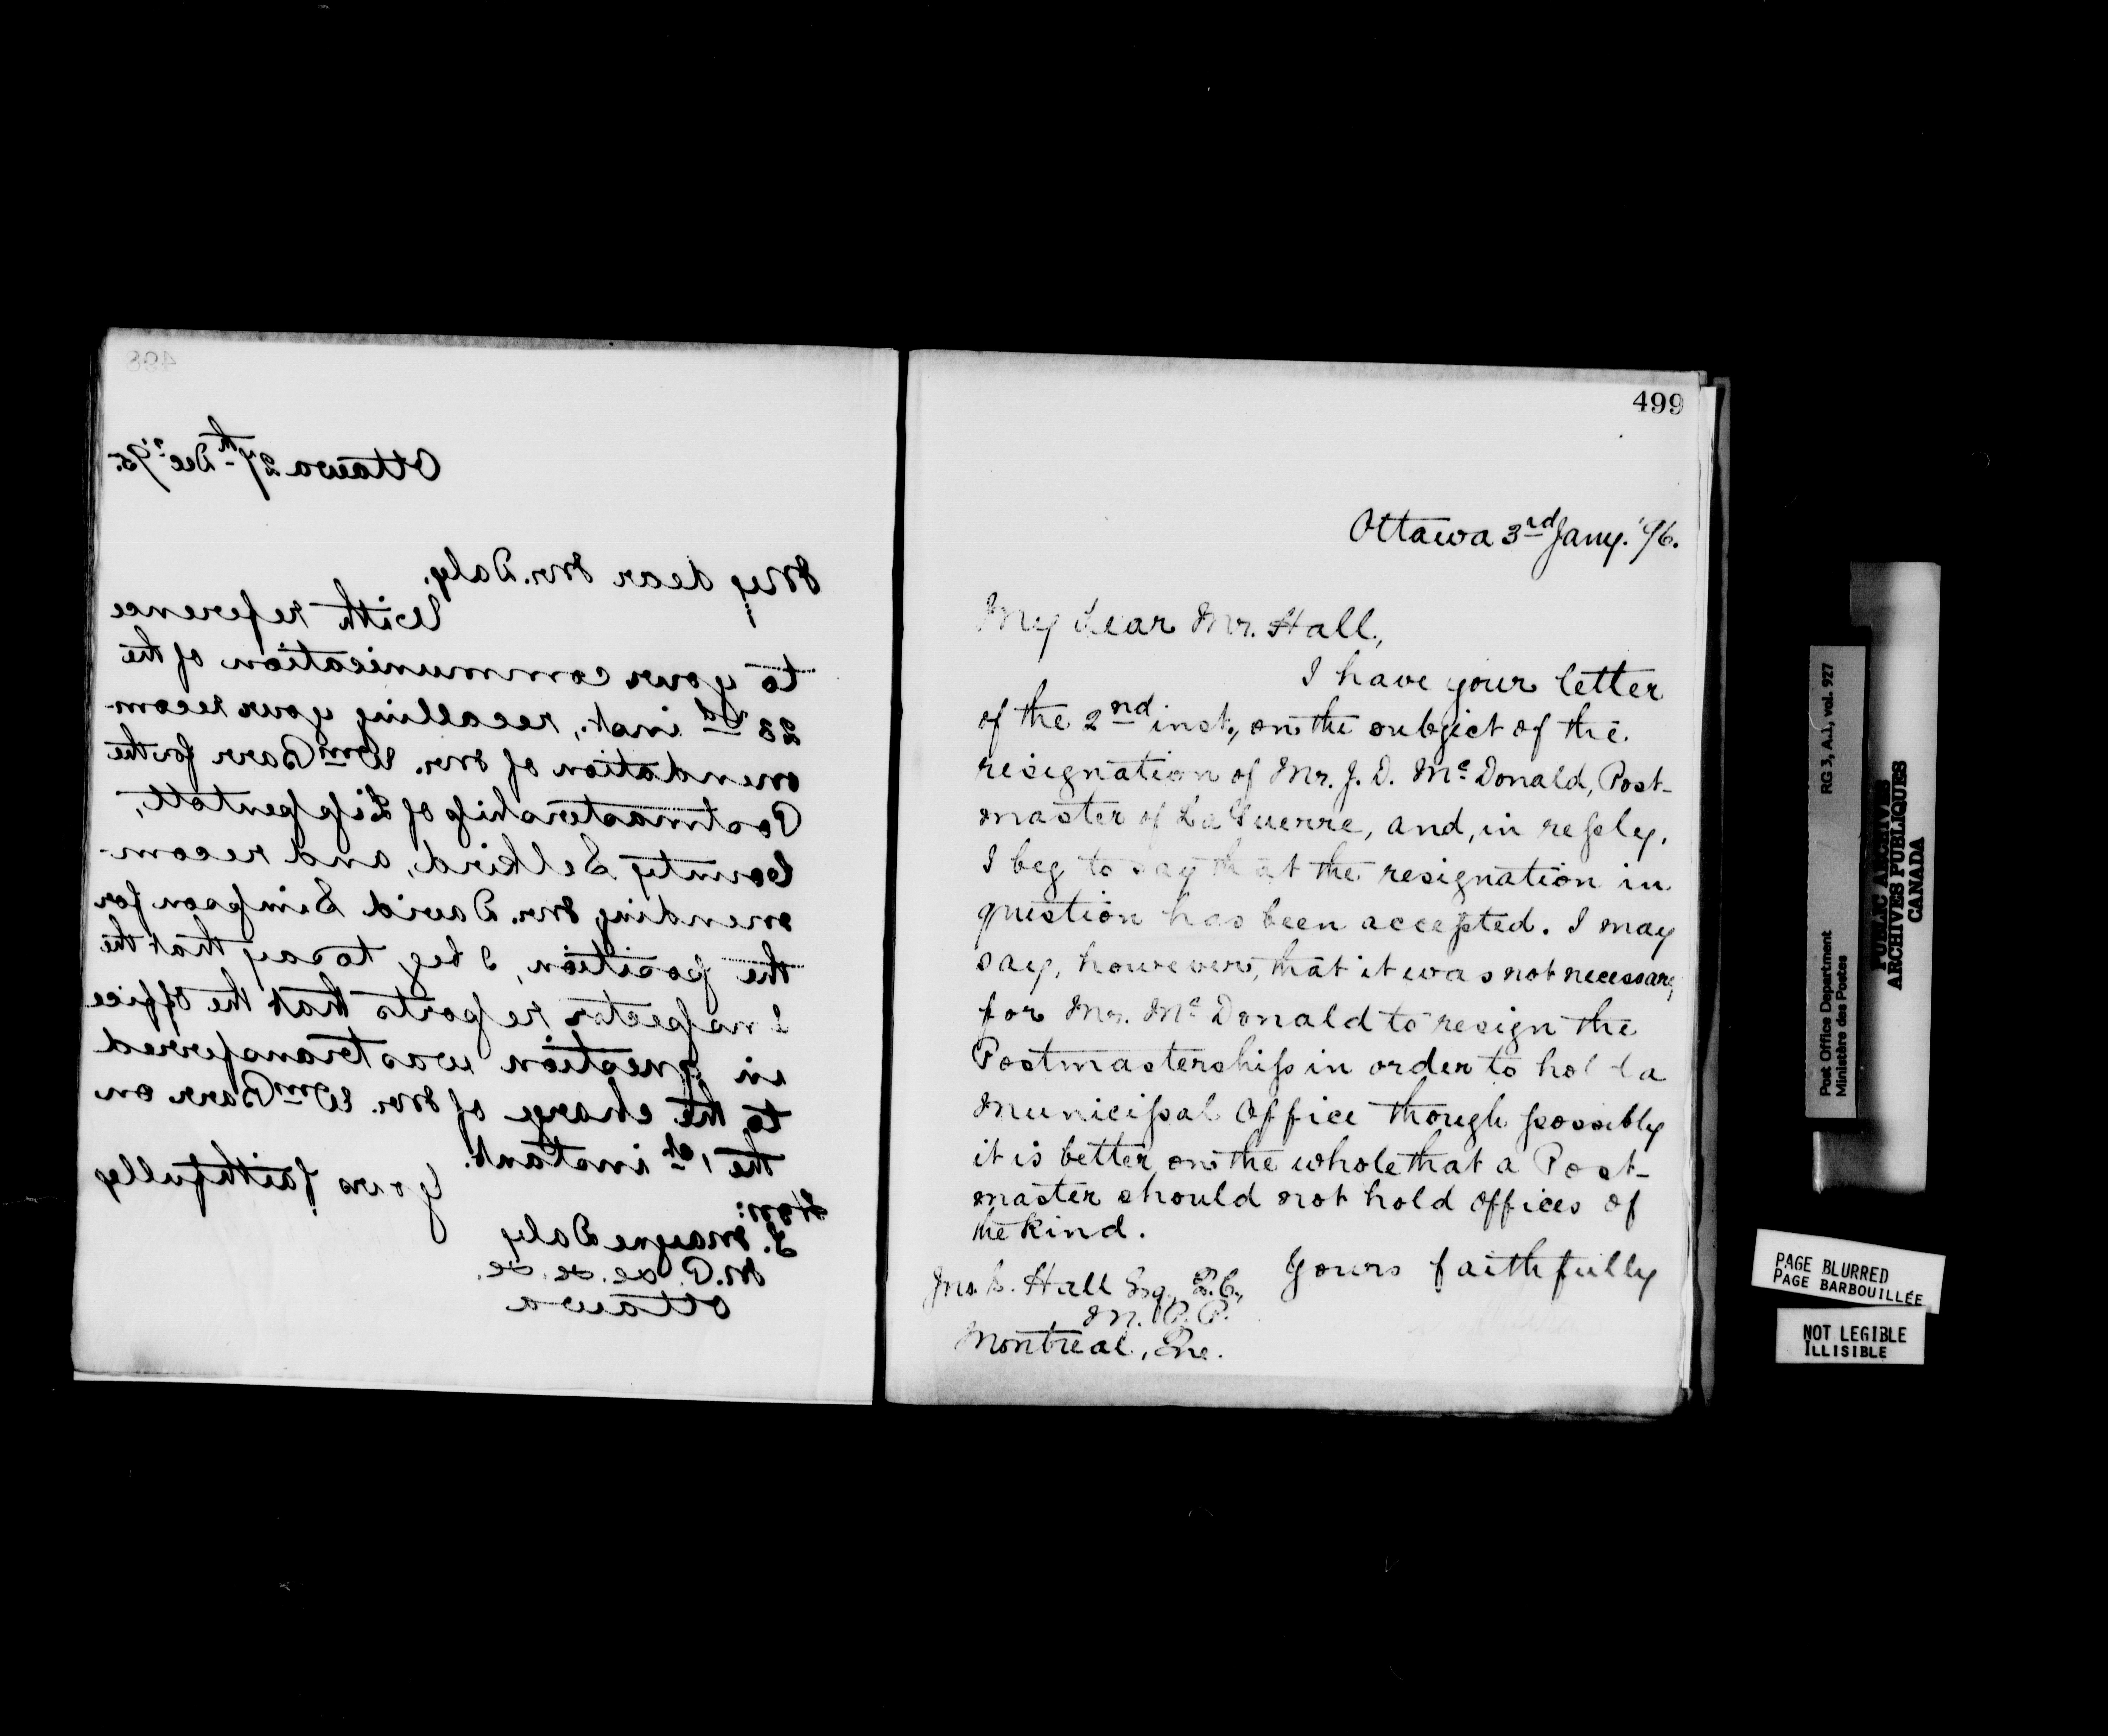 498
Ottawa 27th Decr. '95.
My dear Mr. Daly,
With reference
to your communication of the
23rd inst., recalling your recom-
mendation of Mr. Wm Barr for the
Postmastership of Lippentott,
County Selkird, and recom-
mending Mr. David Simpson for
the position, I beg to say that the
Inspector reports that the office
in question was transferred
to the charge of Mr. Wm Barr on
the 1st instant.
Yours faithfully
Hon:
T. Mayne Daly
M.P. &c. &c. &c.
Ottawa
499
Ottawa 3rd Jany. '96.
My dear Mr. Hall,
I have your letter
of the 2nd inst., on the subject of the
resignation of Mr. J. D. Mc Donald, Post-
master of La Guerre, and, in reply,
I beg to say that the resignation in
question has been accepted. I may
say, however, that it was not necessary
for Mr. Mc Donald to resign the
Postmastership in order to hold a
Municipal Office though possibly
it is better on the whole that a Post-
master should not hold offices of
the kind.
Yours faithfully
Jno. S. Hall Esq., Q.C.,
M.P.P.
Montreal, Que.
Post Office Department RG 3, A.1, vol. 927
Ministère des Postes
PUBLIC ARCHIVES
ARCHIVES PUBLIQUES
CANADA
PAGE BLURRED
PAGE BARBOUILLÉE
NOT LEGIBLE
ILLISIBLE